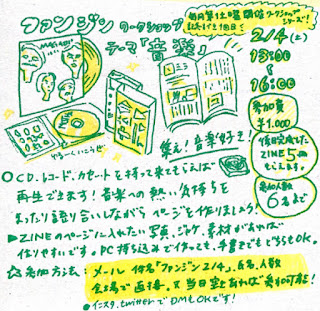 ファンジン ワークショップ
テーマ「音楽」
毎月第1土曜開催ワークショップ
シリーズ!
2/4(土)
13:00
16:00
参加費
¥1.000
ZINE5冊
もらえます。
参加人数
6名まで
MAGAO!
ゆる〜くいこうぜ
集え!音楽好き!
○CD、レコード、カセートを持って来てもらえば
再生できます!音楽への熱い気持ちを
まったり語り合いしながら ページを作りましょう!
▶ZINEのページに入れたい写真、ジャケ、素材があれば
作りやすいです。PC持ち込みで作っても、手書きでもどちらもOK。
☆参加方法:メール 件名「ファンジン2/4」、氏名、人数
会場で直接、又 当日空きあれば参加可能!
●インスタ、twitterでDMもOKです!